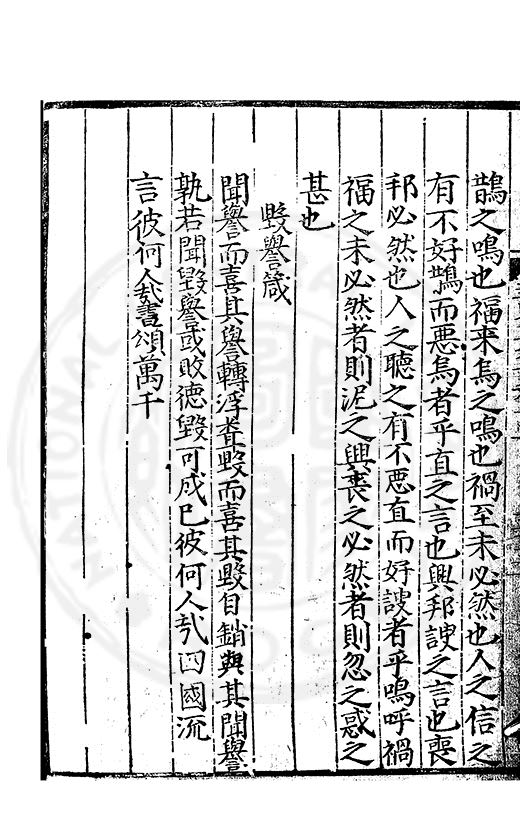 鵲之鳴也福来烏之鳴也禍至未必然也人之信之
有不好鵲而惡烏者乎直之言也興邦諛之言也喪
邦必然也人之聽之有不惡直而好諛者乎嗚呼禍
福之未必然者則泥之興喪之必然者則忽之惑之
甚也
毀譽箴
聞譽而喜其譽轉浮聞毀而喜其毀自銷與其聞譽
孰若聞毀譽或敗德毀可成已彼何人哉四國流
言彼何人哉書頌萬千